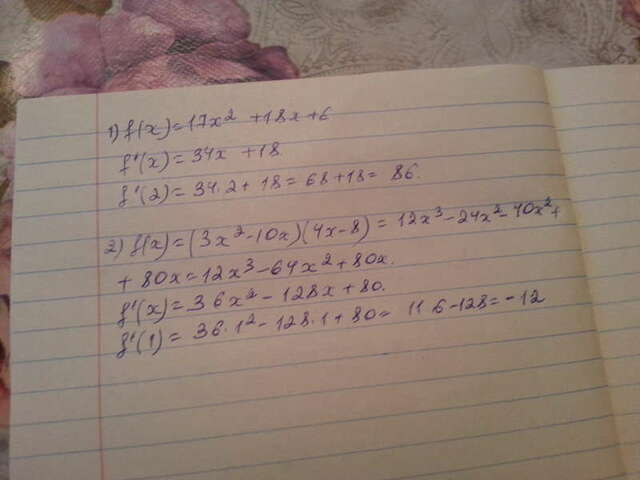 1) f(x)=17x² +18x+6
f'(x)=34x +18
f'(2)=34·2+18=68+18=86.
2) f(x)=(3x²-10x)(4x-8)=12x³-24x²-40x²+
+80x=12x³-64x²+80x.
f'(x)=36x²-128x+80.
f'(1)=36·1²-128·1+80=116-128=-12